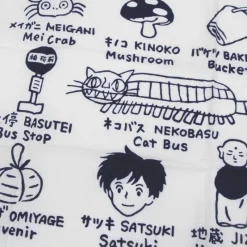 メイガニ MEIGANI
Mei Crab
キノコ KINOKO
Mushroom
バケツ BAK
Bucket
停 BASUTEI
Bus Stop
ネコバス NEKOBASU
Cat Bus
OMIYAGE
venir
サツキ SATSUKI
Satsuki
地蔵